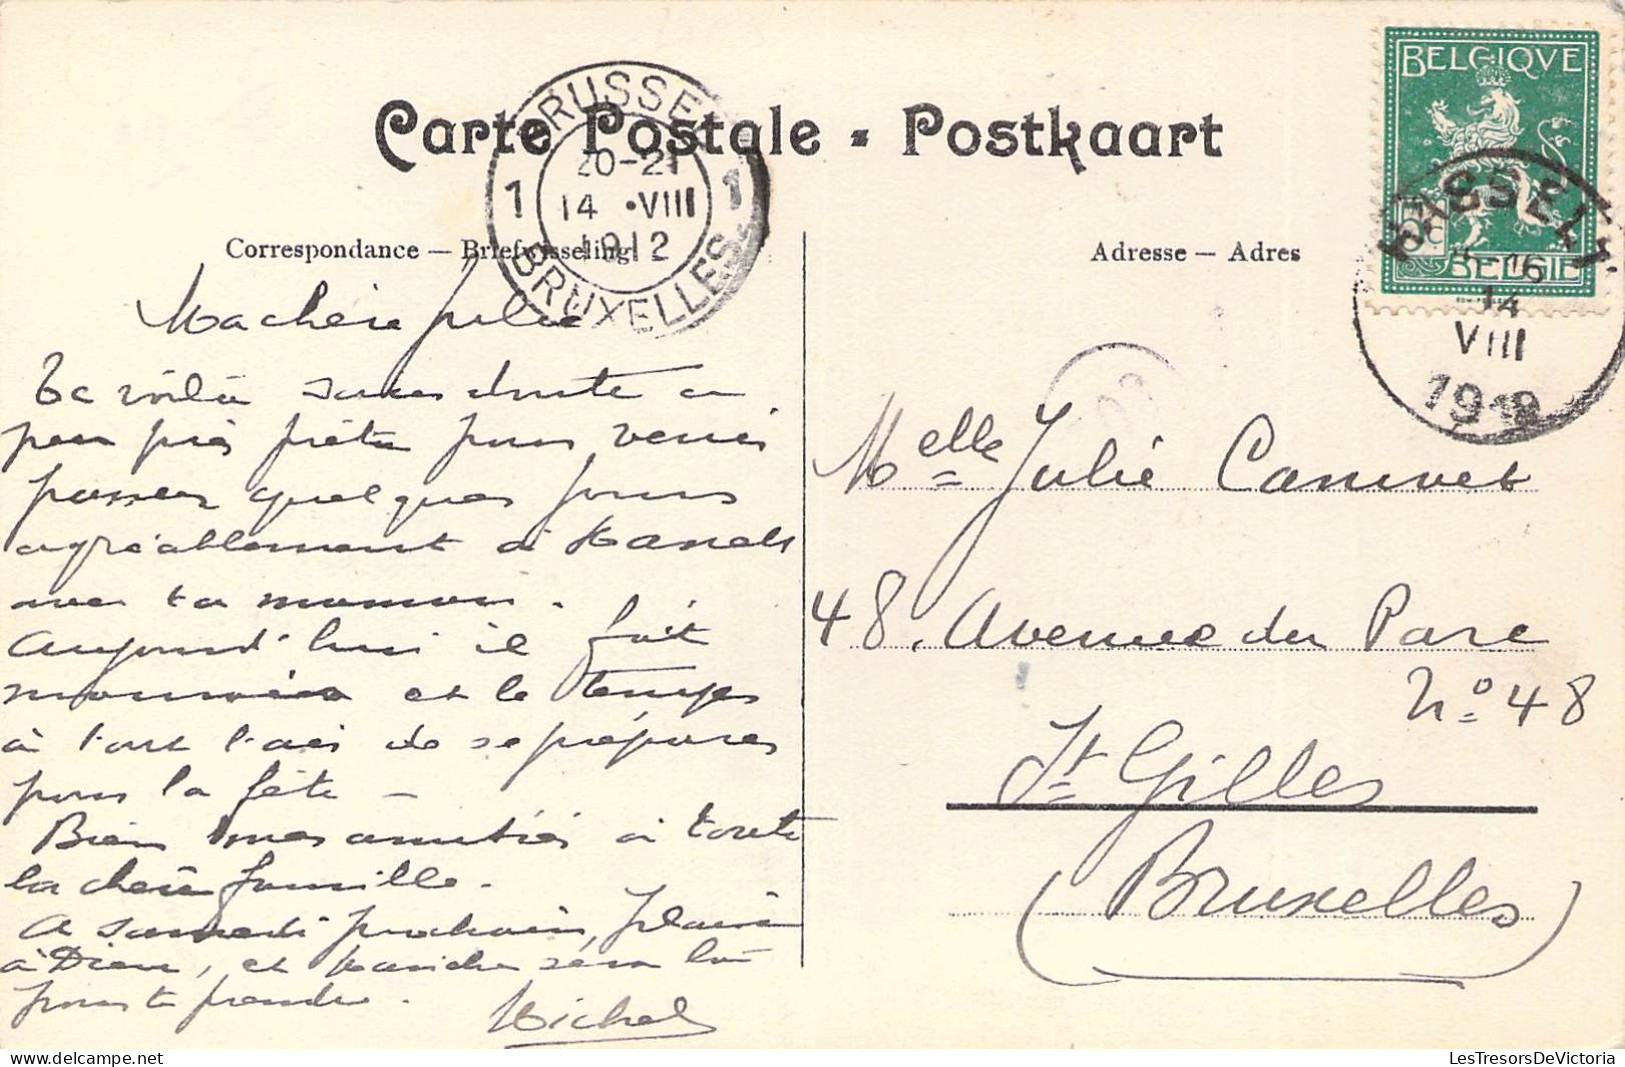 Carte Postale - Postkaart
BRUSSEL
20-21
1 14 •VIII 1
1912
BRUXELLES
BELGIQVE
BELGIË
HASSELT
15-16
14
VIII
1912
Correspondance — Briefwisseling
Adresse — Adres
Ma chère Julie
Te voilà sans doute a
peu près prête pour venir
passer quelques jours
agréablement à Hasselt
avec ta maman.
Aujourd'hui il fait
mauvais et le temps
à tout l'air de se préparer
pour la fête —
Bien mes amitiés à toute
la chère famille.
A samedi prochain, plaise
à Dieu, et sera là
pour te prendre.
Michel
Melle Julie Canivet
48, Avenue du Parc
No 48
St Gilles
(Bruxelles)
LesTresorsDeVictoria